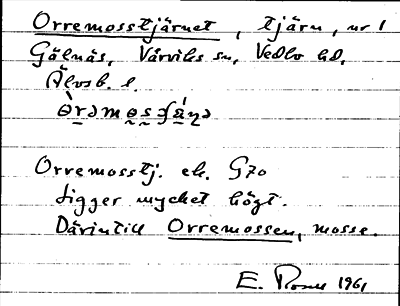 Orremosstjärnet, tjärn, nr 1
Gälnäs, Vårviks sn, Vedbo hd,
Älvsb. l.
Orremosstj. ek. G70
Ligger mycket högt.
Därintill Orremossen, mosse.
E. 1961